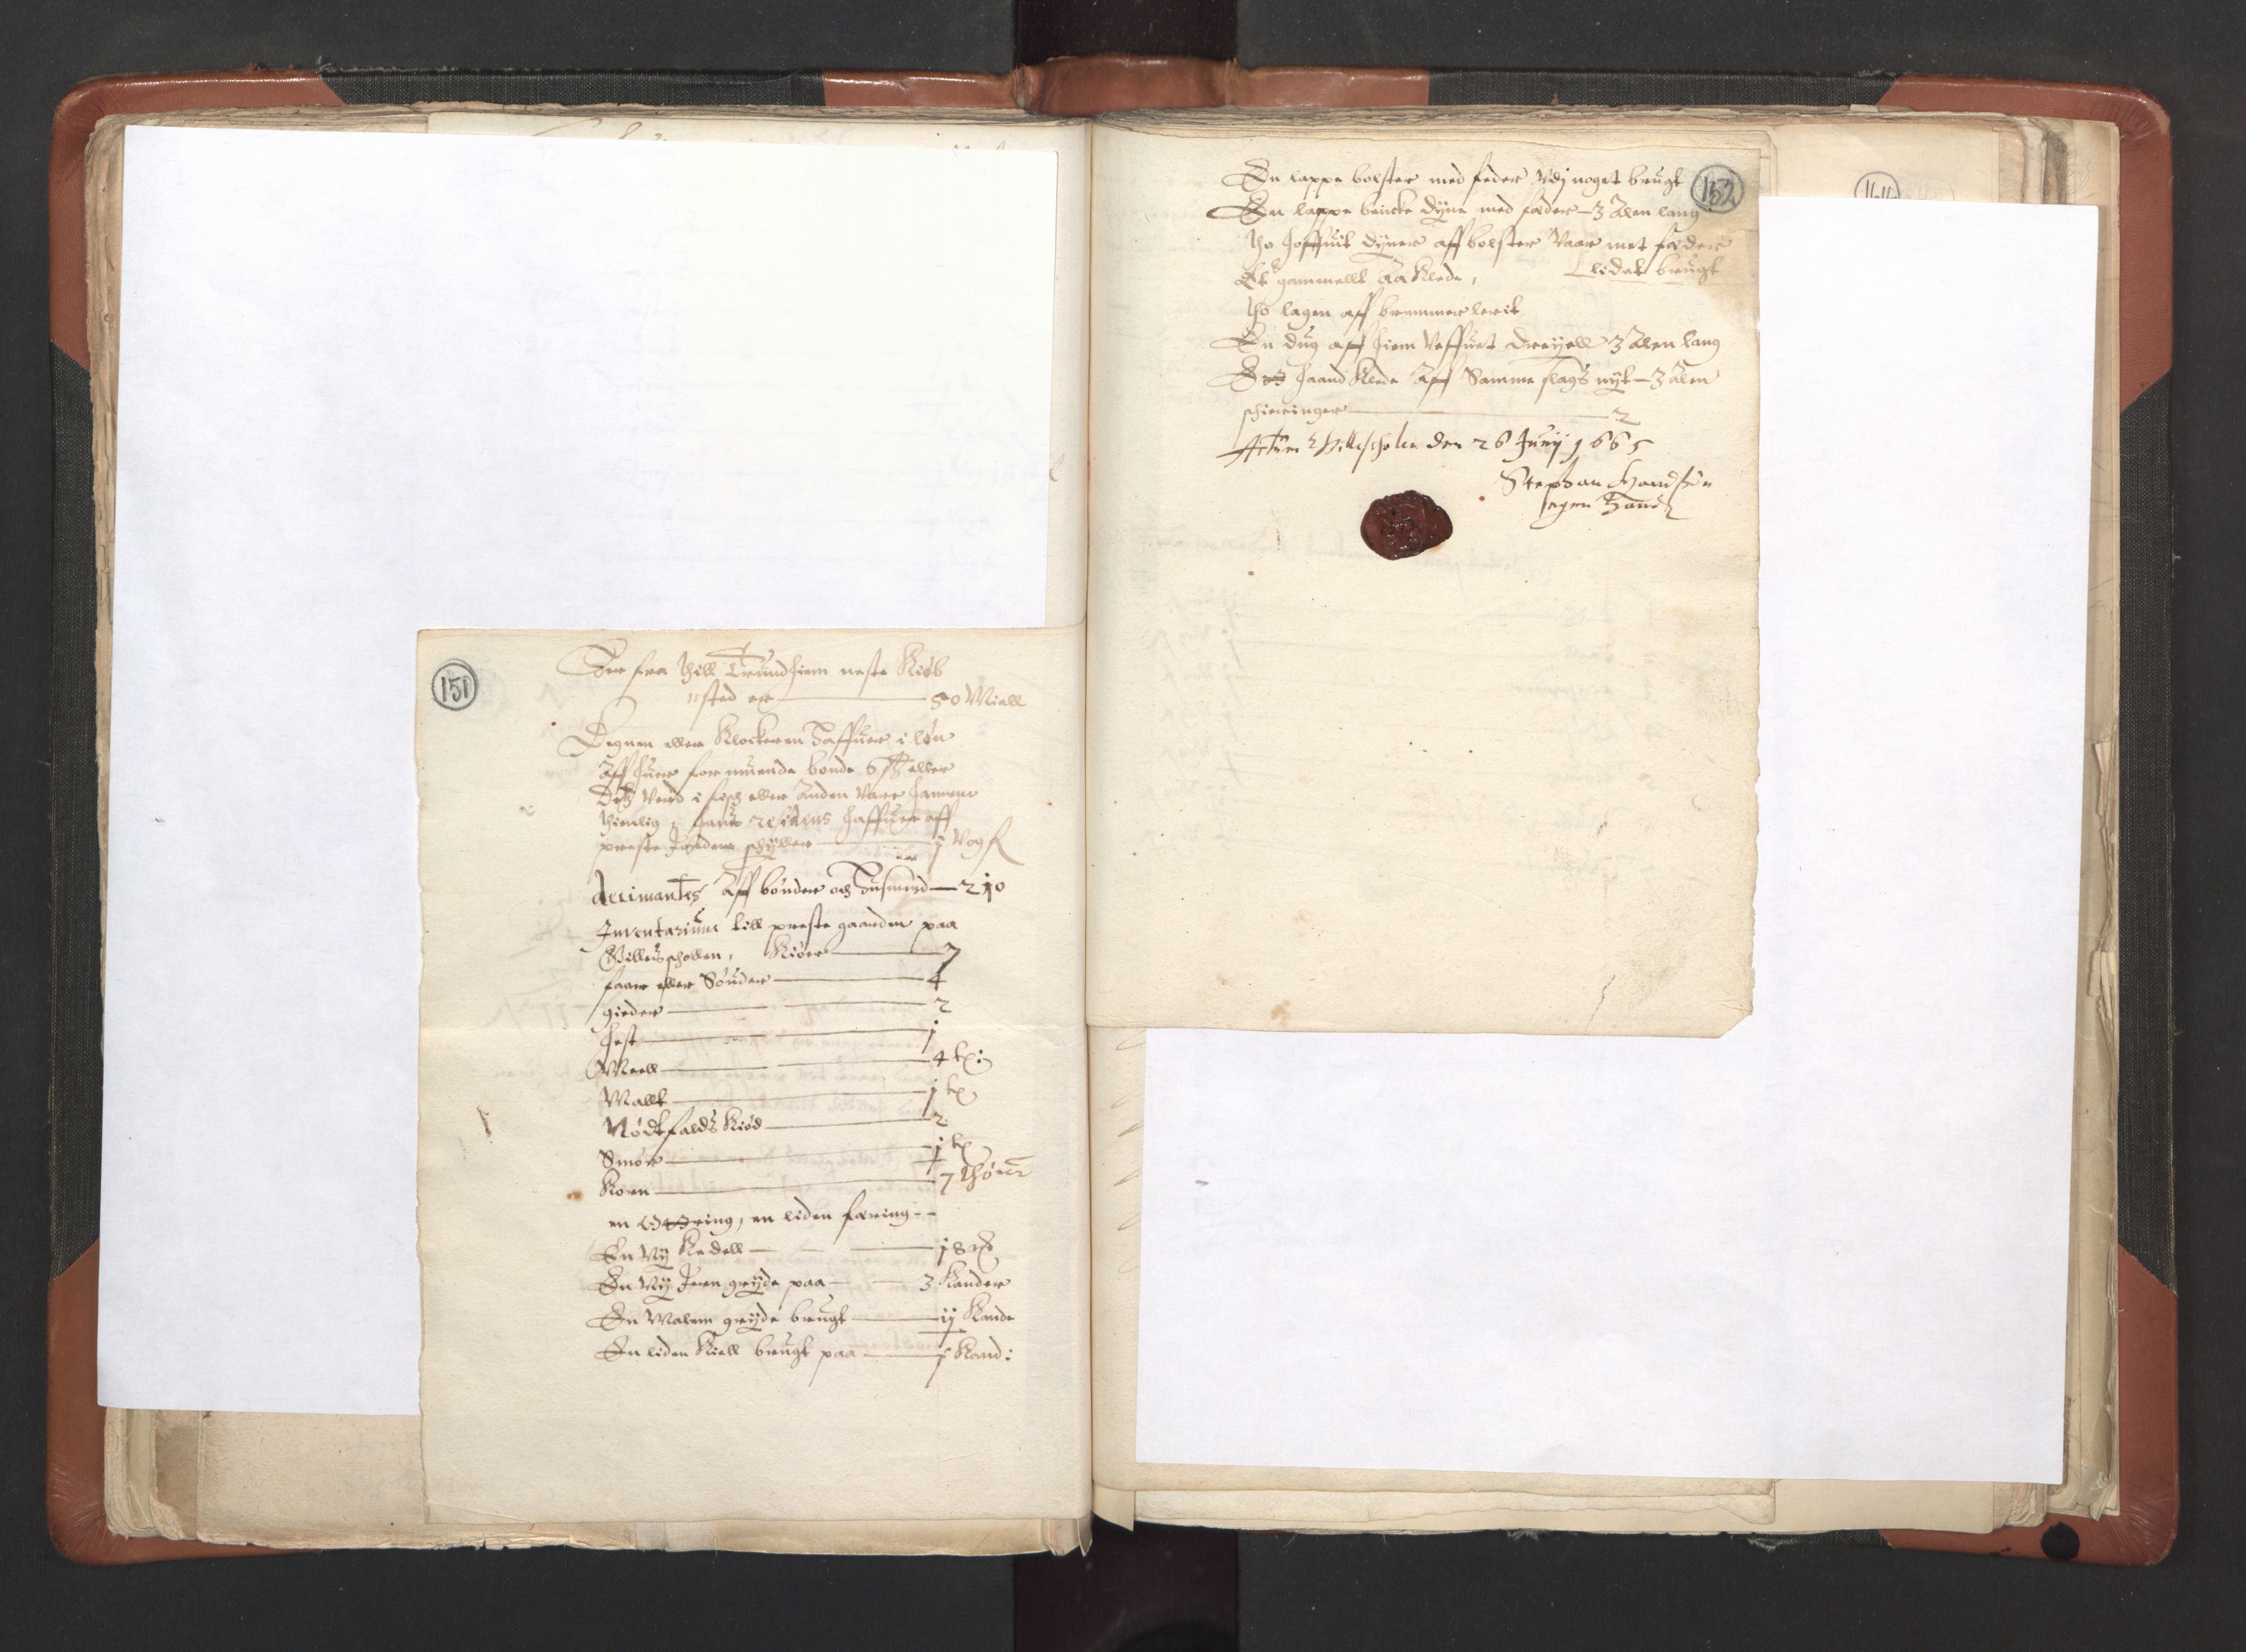 151
Der fra thill Trundhiem neste Kiøb
sted er 80 Miell
Degnen eller Klockeren Haffuer i løn
Aff huer formuende bonde 6 ß eller
Dis Verd i fisch eller Anden Vare
thienlig, hans residens haffuer aff
preste schylder j Vog
decimantes Aff bønder och Husmend 210
Inventarium till preste gaarden paa
Kiøer 7
faar eller Souder 4
gieder 2
Hest j
Meell 4
Mallt j
Nødtfalds Kiød 2
Smør j
Korn 7 thøner
en liden færing
En Ny Kedell j8
En Ny Jern gryde paa 3 Kander
En Malm gryde brugt ij Kande
En liden Kiell brugt paa j Kand:
152
En lappe bolster med feder Vdj noget brugt
En lappe bencke dyne med feder 3 Alen lang
tho hoffuit dyner aff bolster Vaar met feder
Et gammellt Aaklede, lidet brugt
tho lagen aff bremmer lerit
En dug aff hiem Veffuet dreyell 3 Alen lang
haand Klede Aff Samme slags nyt 3 Alen
2
den 26 Junij 1665
Stephan Handsøn
egen Hand